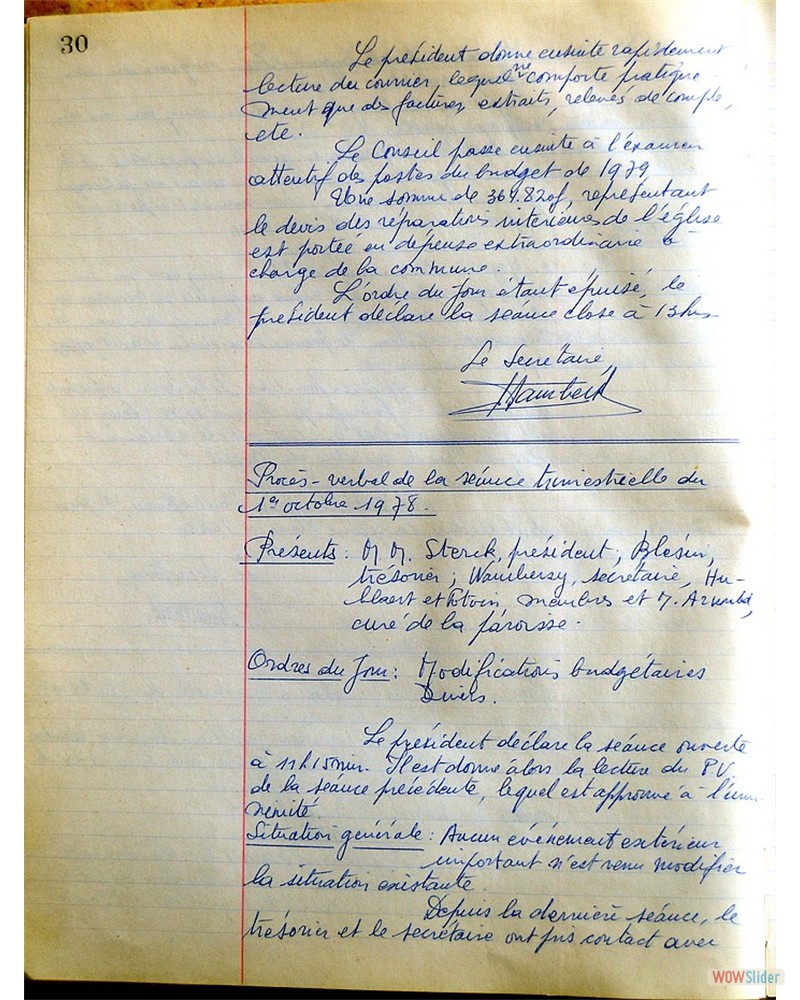 30
Le président donne ensuite rapidement
lecture du courrier, lequel ne comporte pratique-
ment que des factures, extraits, relevés de compte,
etc.
Le Conseil passe ensuite à l'examen
attentif des postes du budget de 1979
Une somme de 369.820f, représentant
le devis des réparations intérieures de l'église
est portée en dépense extraordinaire à
charge de la commune.
L'ordre du jour étant épuisé, le
président déclare la séance close à 13hs
Le Secrétaire,
Procès-verbal de la séance trimestrielle du
1er octobre 1978.
Présents : M.M. Sterck, président ; Blésin,
trésorier ; Wambersy, secrétaire, Hu-
blaert et Potvin, membres et M.
curé de la paroisse.
Ordres du Jour : Modifications budgétaires
Divers.
Le président déclare la séance ouverte
à 11h15min. Il est donné alors la lecture du P.V.
de la séance précédente, lequel est approuvé à l'una-
nimité.
Situation générale : Aucun événement extérieur
important n'est venu modifier
la situation existante.
Depuis la dernière séance, le
trésorier et le secrétaire ont pris contact avec
WOWSlider